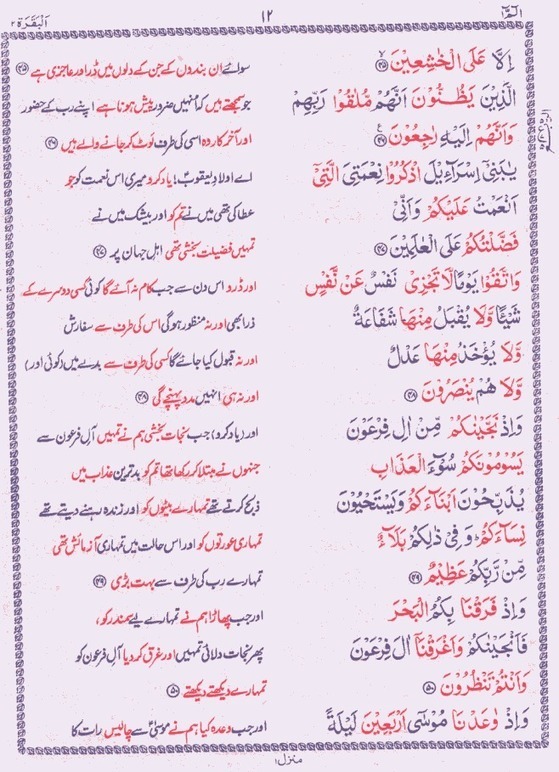 الٓمّٓ ۱ ١٢ اَلْبَقَرَة ٢
اِلَّا عَلَى الْخٰشِعِيْنَ ﴿۴۵﴾ سوائے ان بندوں کے جن کے دلوں میں ڈر اور عاجزی ہے ﴿۴۵﴾
الَّذِيْنَ يَظُنُّوْنَ اَنَّهُمْ مُّلٰقُوْا رَبِّهِمْ جو سمجھتے ہیں کہ انہیں ضرور پیش ہونا ہے اپنے رب کے حضور
وَاَنَّهُمْ اِلَيْهِ رٰجِعُوْنَ ﴿۴۶﴾ اور آخر کار وہ اسی کی طرف لوٹ کر جانے والے ہیں ﴿۴۶﴾
يٰبَنِيْٓ اِسْرَآءِيْلَ اذْكُرُوْا نِعْمَتِيَ الَّتِيْٓ اے اولادِ یعقوبؑ! یاد کرو میری اس نعمت کو جو
اَنْعَمْتُ عَلَيْكُمْ وَاَنِّيْ عطا کی تھی میں نے تم کو اور بیشک میں نے
فَضَّلْتُكُمْ عَلَى الْعٰلَمِيْنَ ﴿۴۷﴾ تمہیں فضیلت بخشی تھی اہلِ جہان پر ﴿۴۷﴾
وَاتَّقُوْا يَوْمًا لَّا تَجْزِيْ نَفْسٌ عَنْ نَّفْسٍ اور ڈرو اس دن سے جب کام نہ آئے گا کوئی کسی دوسرے کے
شَيْـًٔا وَّلَا يُقْبَلُ مِنْهَا شَفَاعَةٌ ذرا بھی اور نہ منظور ہوگی اس کی طرف سے سفارش
وَّلَا يُؤْخَذُ مِنْهَا عَدْلٌ اور نہ قبول کیا جائے گا کسی کی طرف سے بدلے میں (کوئی اور)
وَّلَا هُمْ يُنْصَرُوْنَ ﴿۴۸﴾ اور نہ ہی انہیں مدد پہنچے گی ﴿۴۸﴾
وَاِذْ نَجَّيْنٰكُمْ مِّنْ اٰلِ فِرْعَوْنَ اور (یاد کرو) جب نجات بخشی ہم نے تمہیں آلِ فرعون سے
يَسُوْمُوْنَكُمْ سُوْٓءَ الْعَذَابِ جنہوں نے مبتلا کر رکھا تھا تم کو بدترین عذاب میں
يُذَبِّحُوْنَ اَبْنَآءَكُمْ وَيَسْتَحْيُوْنَ ذبح کرتے تھے تمہارے بیٹوں کو اور زندہ رہنے دیتے تھے
نِسَآءَكُمْ ؕ وَفِيْ ذٰلِكُمْ بَلَآءٌ تمہاری عورتوں کو اور اس حالت میں تمہاری آزمائش تھی
مِّنْ رَّبِّكُمْ عَظِيْمٌ ﴿۴۹﴾ تمہارے رب کی طرف سے بہت بڑی ﴿۴۹﴾
وَاِذْ فَرَقْنَا بِكُمُ الْبَحْرَ اور جب پھاڑا ہم نے تمہارے لیے سمندر کو،
فَاَنْجَيْنٰكُمْ وَاَغْرَقْنَآ اٰلَ فِرْعَوْنَ پھر نجات دلائی تمہیں اور غرق کر دیا آلِ فرعون کو
وَاَنْتُمْ تَنْظُرُوْنَ ﴿۵۰﴾ تمہارے دیکھتے دیکھتے ﴿۵۰﴾
وَاِذْ وٰعَدْنَا مُوْسٰٓى اَرْبَعِيْنَ لَيْلَةً اور جب وعدہ کیا ہم نے موسیٰؑ سے چالیس رات کا
منزل ۱